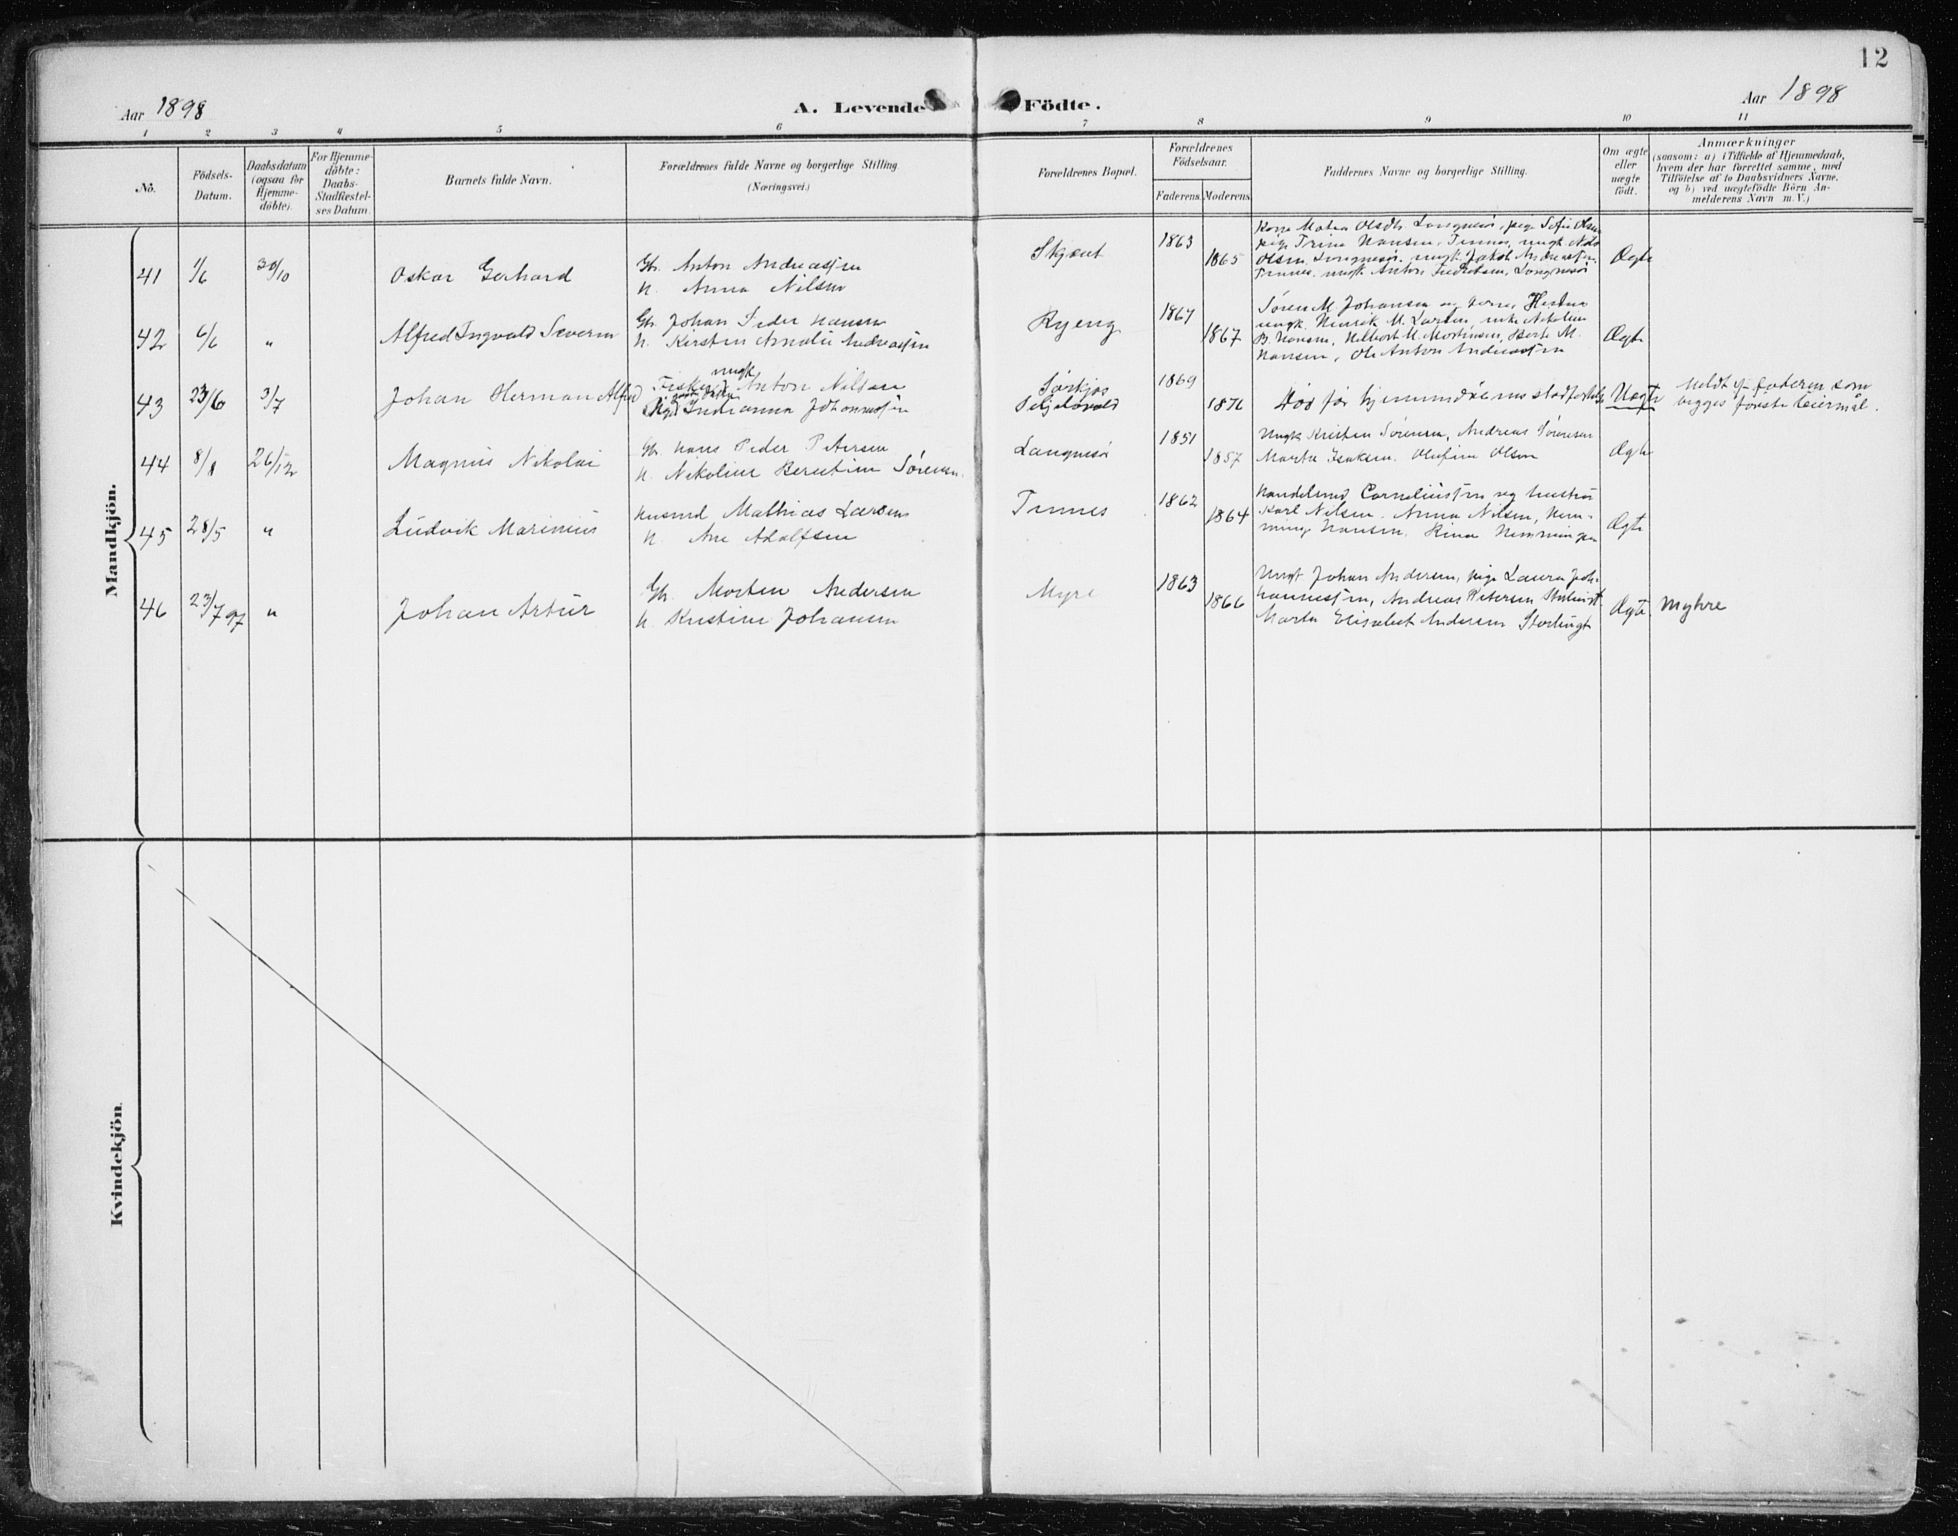 12
Aar 1898
A. Levende Födte.
Aar 1898
1 2 3 4 5 6 7 8 9 10 11
No.
Födsels-Datum.
Daabsdatum (ogsaa for Hjemme-döbte).
For Hjemme-döbte: Daabs-Stadfæstel-ses Datum.
Barnets fulde Navn.
Forældrenes fulde Navne og borgerlige Stilling.
(Næringsvei.)
Forældrenes Bopæl.
Forældrenes Födselsaar.
Faderens. Moderens.
Faddernes Navne og borgerlige Stilling.
Om ægte eller uægte födt.
Anmærkninger
(saasom: a) i Tilfælde af Hjemmedaab,
hvem der har forrettet samme, med
Tilföielse af to Daabsvidners Navne,
og b) ved uægtefödte Börn An-
melderens Navn m. V.)
Mandkjön.
41 1/6 30/10 Oskar Gerhard
Gb. Anton Andreassen
H. Anna Nilsen
Skjævt 1863 1865
Kone Olsdtr Langnesör, pige Sofie Olsen
pige Trine Hansen, Tennes, ungk.
Olsen Langnesör, ungk Jakob Andreassen
Tennes, ungk Anton Langnesör
Ægte
42 6/6 " Alfred Ingvald Severin
Gb. Johan Peder Hansen
H. Kirstin Amalie Andreassen
Ryeng 1867 1867
Søren M. Johansen og
ungk. Henrik M. Larsen, enke Nikoline
B. Hansen, M. Mortensen, Berte M.
Hansen, Ole Anton Andreassen
Ægte
43 23/6 3/7 Johan Herman Alfred
ungk
Fisker Anton Nilsen
Pige Indianna Johannessen
Sørkjos
1869 1876
Død før hjemmedåbens stadfæstelse
Uægte
Meldt af faderen som
begges første leiermål.
44 8/8 26/12 Magnus Nikolai
Gb. Hans Peder Petersen
H. Nikoline Berntine Sørensen.
Langnesör 1851 1857
Ungk Kristen Sørensen, Andreas Sørensen
Marta Isaksen. Olufine Olsen
Ægte
45 28/5 " Ludvik Marinius
Husmd Mathias Larsen
H. Ane Adolfsen
Tennes 1862 1864
Handelsmd Corneliussen og hustru
Karl Nilsen. Anna Nilsen, Hem-
ming Hansen. Rina Hemmingsen
Ægte
46 23/7 97 " Johan Artur
Gb. Morten Andersen
H. Kristine Johansen
Myre 1863 1866
Ungk Johan Andersen, pige Laura Joh-
hannessen, Andreas Petersen
Marta Elisabet Andersen
Ægte Myhre
Kvindekjön.